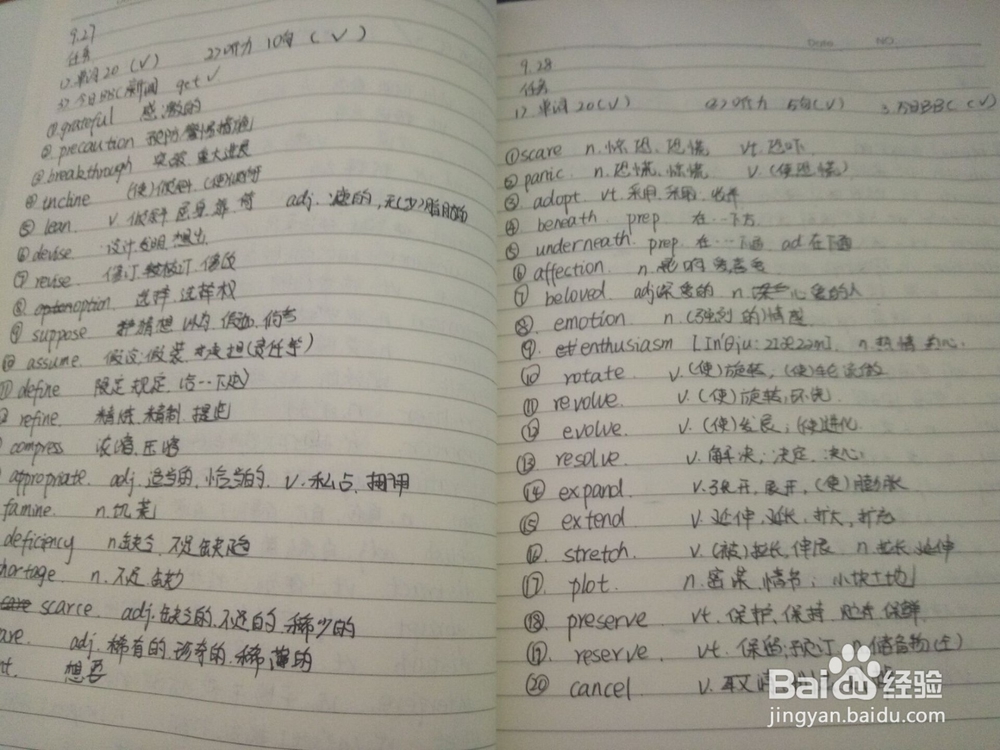 9.27
任务
1) 单词20 (√) 2) 听力 10句 (√)
3) 今日BBC新闻 get √
① grateful 感激的
② precaution 预防 警惕措施
③ breakthrough 突破 重大进展
④ incline (使)倾斜
⑤ lean v. 倾斜 adj.
⑥ devise 设计 发明 想出
⑦ revise 修订 校订 修改
⑧ option 选择 选择权
⑨ suppose 猜想 以为 假如
⑩ assume 假设 假装 承担(责任等)
⑪ define 限定 规定 给…下定
refine 精炼 精制 提纯
compress 浓缩 压缩
appropriate. adj. 适当的, 恰当的. v. 私占, 挪用
famine. n. 饥荒
deficiency n 缺乏 不足 缺陷
hortage. n. 不足 缺少
scarce adj. 缺乏的, 不足的 稀少的
are. adj. 稀有的 珍奇的 稀薄的
nt. 想要
Date NO
9.28
任务
1) 单词20 (√) (2) 听力 5句 (√) 3. 今日BBC (√)
① scare n. 惊恐, 恐慌 vt. 恐吓
② panic n. 恐慌, 惊慌 v. (使恐慌)
③ adopt vt. 采用
④ beneath prep 在…下方
⑤ underneath. prep 在…下面 ad 在下面
⑥ affection n. 影响
⑦ beloved. adj 深爱的 n. 心爱的人
⑧. emotion n. (强烈的)情感
⑨. enthusiasm n. 热情
⑩ rotate v. (使)旋转,
⑪ revolve v. (使)旋转, 环绕
⑫ evolve. v. (使)发展; (使)进化
⑬ resolve v. 解决; 决定, 决心
⑭ expand. v. 张开, 展开, (使)膨胀
⑮ extend v. 延伸, 延长, 扩大, 扩充
⑯ stretch. v. (被)拉长, 伸展 n 拉长, 延伸
⑰ plot. n. 密谋, 情节; 小块土地
⑱ preserve vt. 保护, 保持 贮存 保鲜
⑲ reserve. vt. 保留; 预订 n. 储备物(注)
⑳ cancel v. 取消
Baidu 经验
jingyan.baidu.com